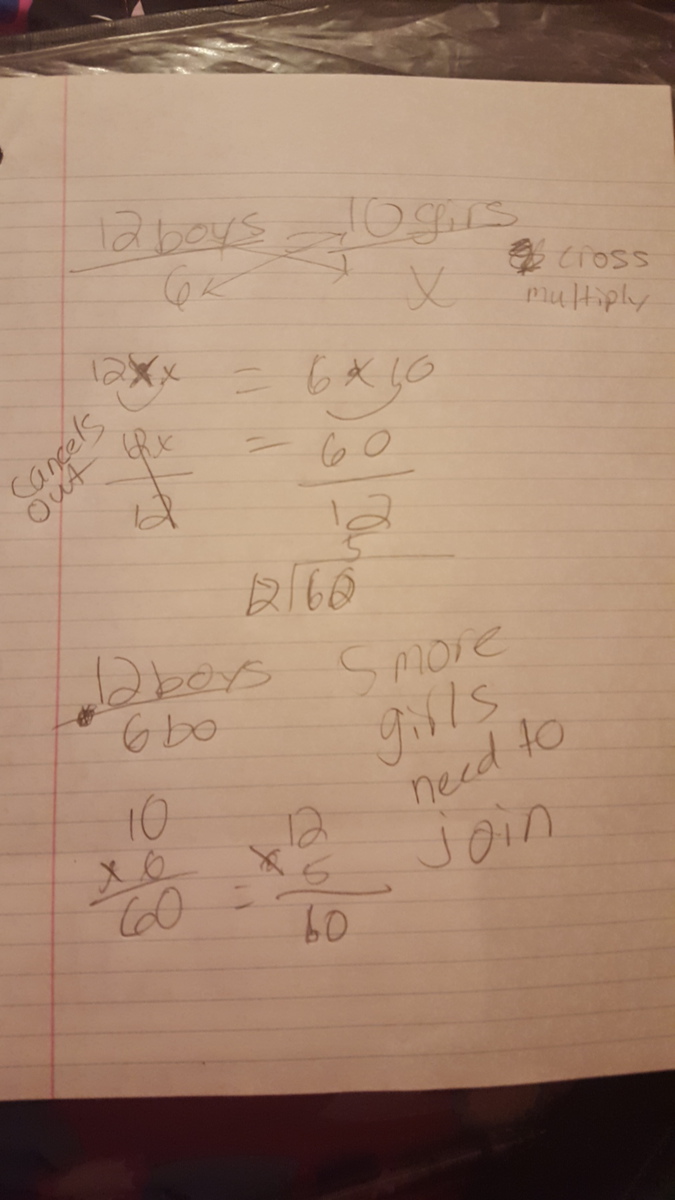 12 boys = 10 girs
6 x
cross
multiply
12 x x = 6 x 10
cancels
out
12x = 60
12 12
5
12 60
12 boys
6 bo
5 more
girls
need to
join
10 12
x 6 x 5
60 = 60